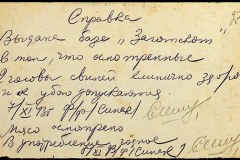 Справка
Выдана базе „Заготскот"
в том, что осмотренные
головы свиней клинично здоро-
и к убою допускаются
Мясо осмотрено
В употребление годное